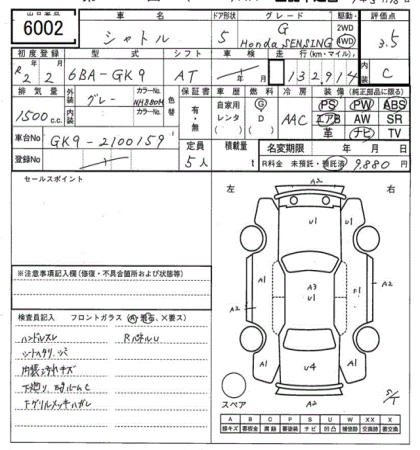 6002
車名
シャトル
ドア形状
5
グレード
G
Honda SENSING
駆動
2WD
4WD
評価点
3.5
初度登録
R2年 2月
型式
6BA-GK9
シフト
AT
車検
走行(km・マイル)
132,914
内装
C
排気量
1500 c.c.
外装
グレー
カラーNo.
NH880M
内装
カラーNo.
色替
保証書
有・無
車歴
自家用
レンタ
( )
燃料
G
D
( )
冷房
AAC
装備(純正部品に限る)
PS PW ABS
エアB AW SR
革 ナビ TV
車台No.
GK9-2100159
登録No.
定員
5人
積載量
t
名変期限 年 月 日
R料金 未預託・預託済 9,880円
セールスポイント
左
右
A2
U1
U1
A1
A1
A2
A3
U1
F1
A2
A1
A1
U4
A2
S/T
スペア
※注意事項記入欄(修復・不具合箇所および状態等)
検査員記入 フロントガラス(A・飛石、×要ス)
ハンドルスレ
RパネルU
シートハタリ、シミ
内装ヨゴレキズ
下廻り、
Fグリルメッキハガレ
A B C P S U W X XX
修キズ 要板金 腐錆 要塗装 サビ 凹凸 補修跡 要交換